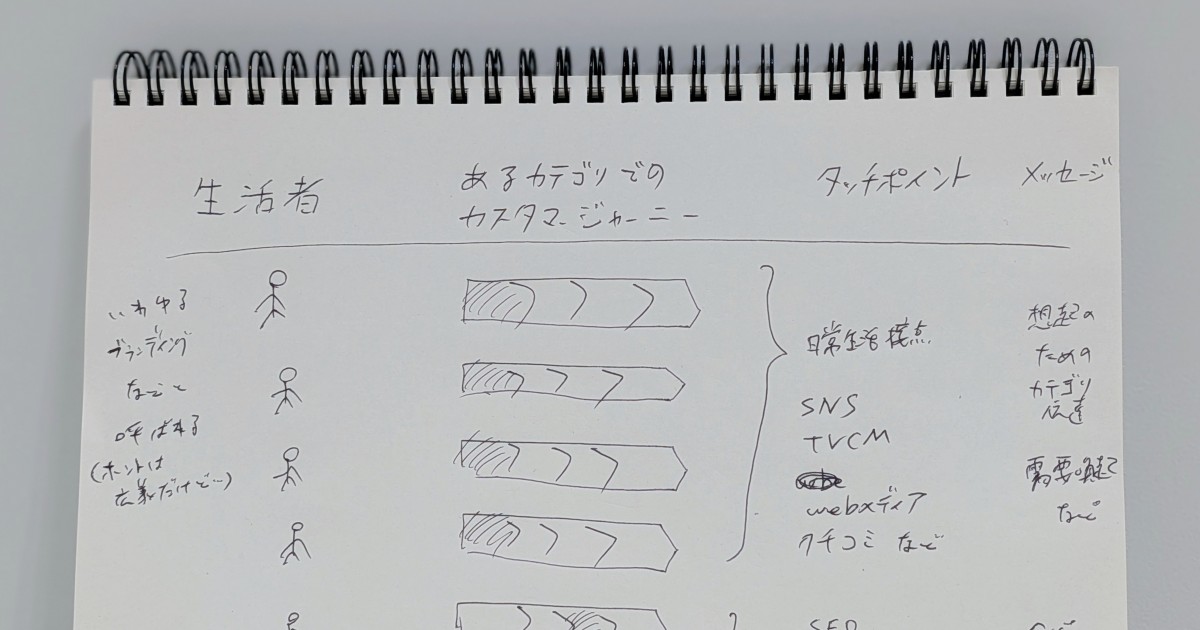 生活者
あるカテゴリでの
カスタマージャーニー
タッチポイント
メッセージ
いわゆる
ブランディング
などと
呼ばれる
(ホントは
広義だけど…)
日常生活接点
SNS
TVCM
webメディア
クチコミ など
想起の
ための
カテゴリ
伝達
需要喚起
など